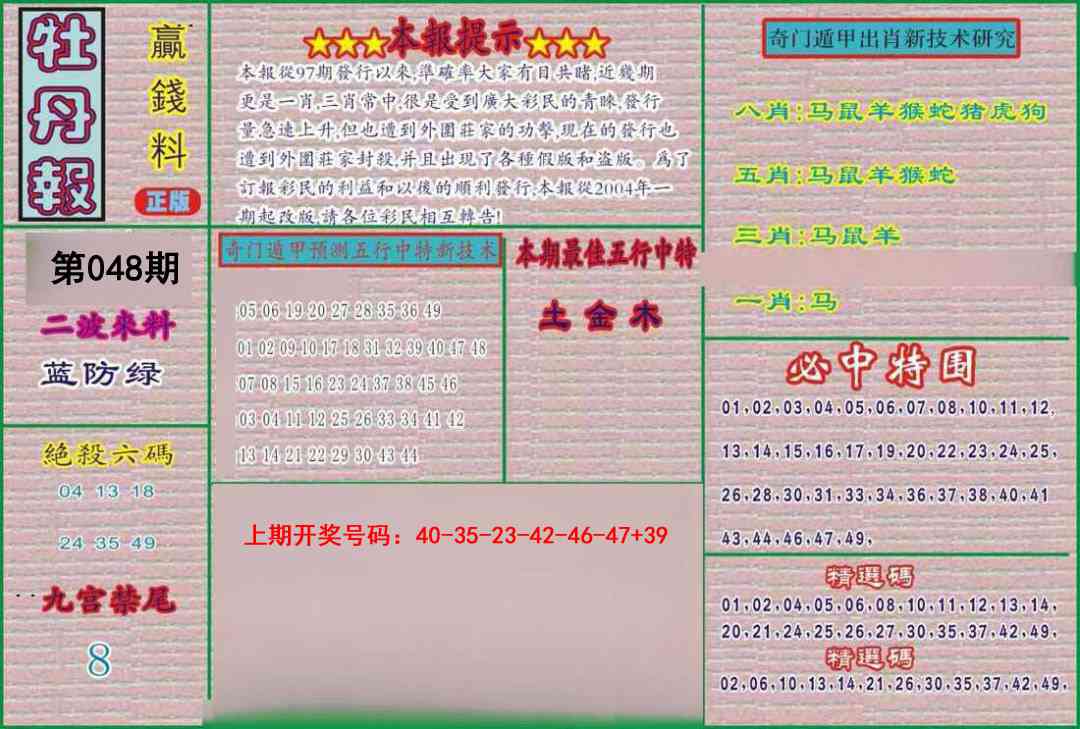 牡丹報
贏錢料
正版
★★★本報提示★★★
本報從97期發行以來,準確率大家有目共睹,近幾期
更是一肖,三肖常中,很是受到廣大彩民的青睞,發行
量急速上升,但也遭到外圍莊家的功擊,現在的發行也
遭到外圍莊家封殺,并且出現了各種假版和盗版。爲了
訂報彩民的利益和以後的順利發行,本報從2004年一
期起改版,請各位彩民相互轉告!
奇门遁甲出肖新技术研究
八肖:马鼠羊猴蛇猪虎狗
五肖:马鼠羊猴蛇
三肖:马鼠羊
一肖:马
第048期
二波来料
蓝防绿
奇门遁甲预测五行中特新技术
05 06 19 20 27 28 35 36 49
01 02 09 10 17 18 31 32 39 40 47 48
07 08 15 16 23 24 37 38 45 46
03 04 11 12 25 26 33 34 41 42
13 14 21 22 29 30 43 44
本期最佳五行中特
土金木
必中特围
01,02,03,04,05,06,07,08,10,11,12,
13,14,15,16,17,19,20,22,23,24,25,
26,28,30,31,33,34,36,37,38,40,41
43,44,46,47,49,
絕殺六碼
04 13 18
24 35 49
九宫禁尾
8
上期开奖号码：40-35-23-42-46-47+39
精選碼
01,02,04,05,06,08,10,11,12,13,14,
20,21,24,25,26,27,30,35,37,42,49,
精選碼
02,06,10,13,14,21,26,30,35,37,42,49,